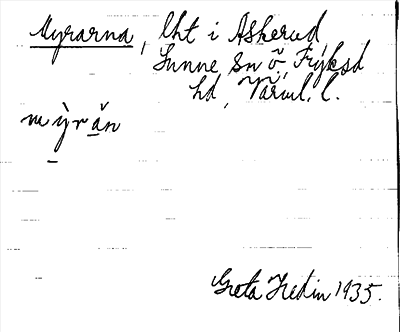 Myrarna, lht i Askerud
Sunne sn ö, Fryksd
hd, Värml. l.
mỳrǎn
Greta Hedin 1935.